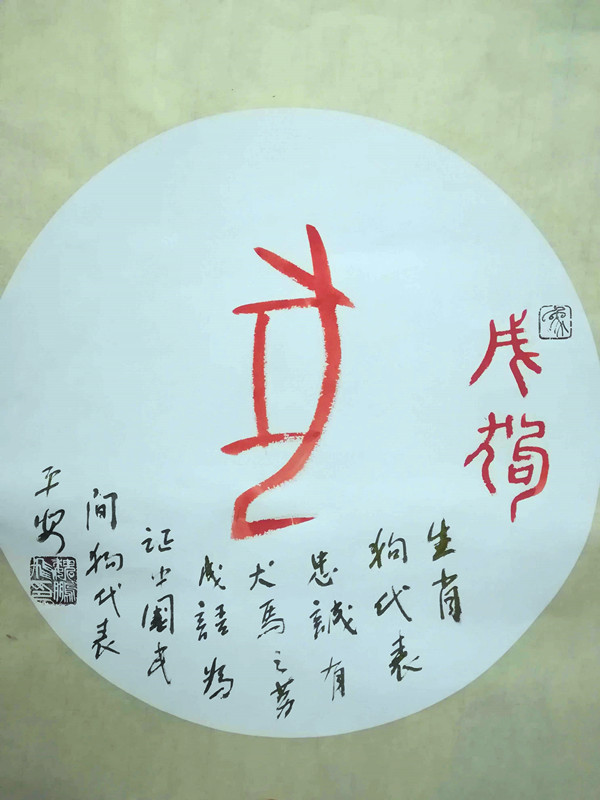 戌狗
生肖
狗代表
忠誠有
犬馬之劳
成語為
证中國民
间狗代表
平安